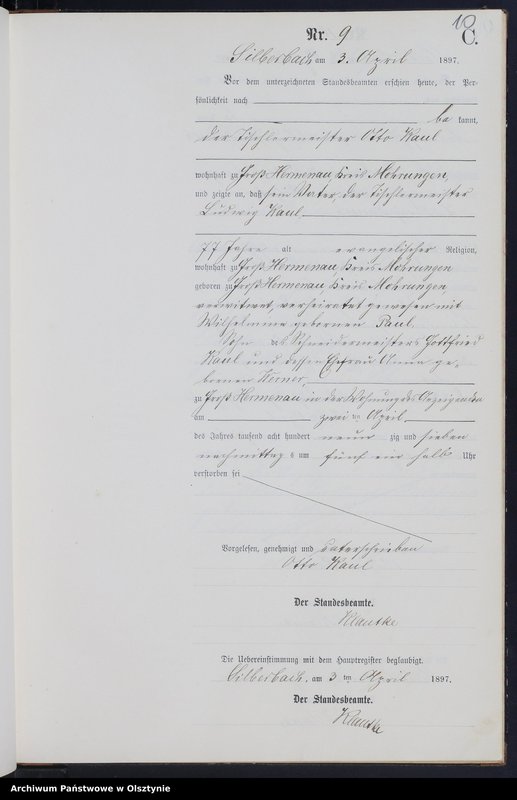 10
Nr. 9
C.
Silberbach am 3. April 1897.
Vor dem unterzeichneten Standesbeamten erschien heute, der Per-
sönlichkeit nach
be kannt,
der Tischlermeister Otto Kaul
wohnhaft zu Groß Hermenau, Kreis Mohrungen
und zeigte an, daß sein Vater der Tischlermeister
Ludwig Kaul
77 Jahre alt evangelischer Religion,
wohnhaft zu Groß Hermenau, Kreis Mohrungen
geboren zu Groß Hermenau, Kreis Mohrungen
verwitwet, verheiratet gewesen mit
Wilhelmine gebornen Paul.
Sohn des Schneidermeisters Gottfried
Kaul und dessen Ehefrau Anna ge-
bornen Werner,
zu Groß Hermenau in der Wohnung des Anzeigenden
am zwei ten April
des Jahres tausend acht hundert neun zig und sieben
nachmittag s um fünf ein halb Uhr
verstorben sei
Vorgelesen, genehmigt und unterschrieben
Otto Kaul
Der Standesbeamte.
Klautke
Die Uebereinstimmung mit dem Hauptregister beglaubigt.
Silberbach, am 3 ten April 1897.
Der Standesbeamte.
Klautke
Archiwum Państwowe w Olsztynie